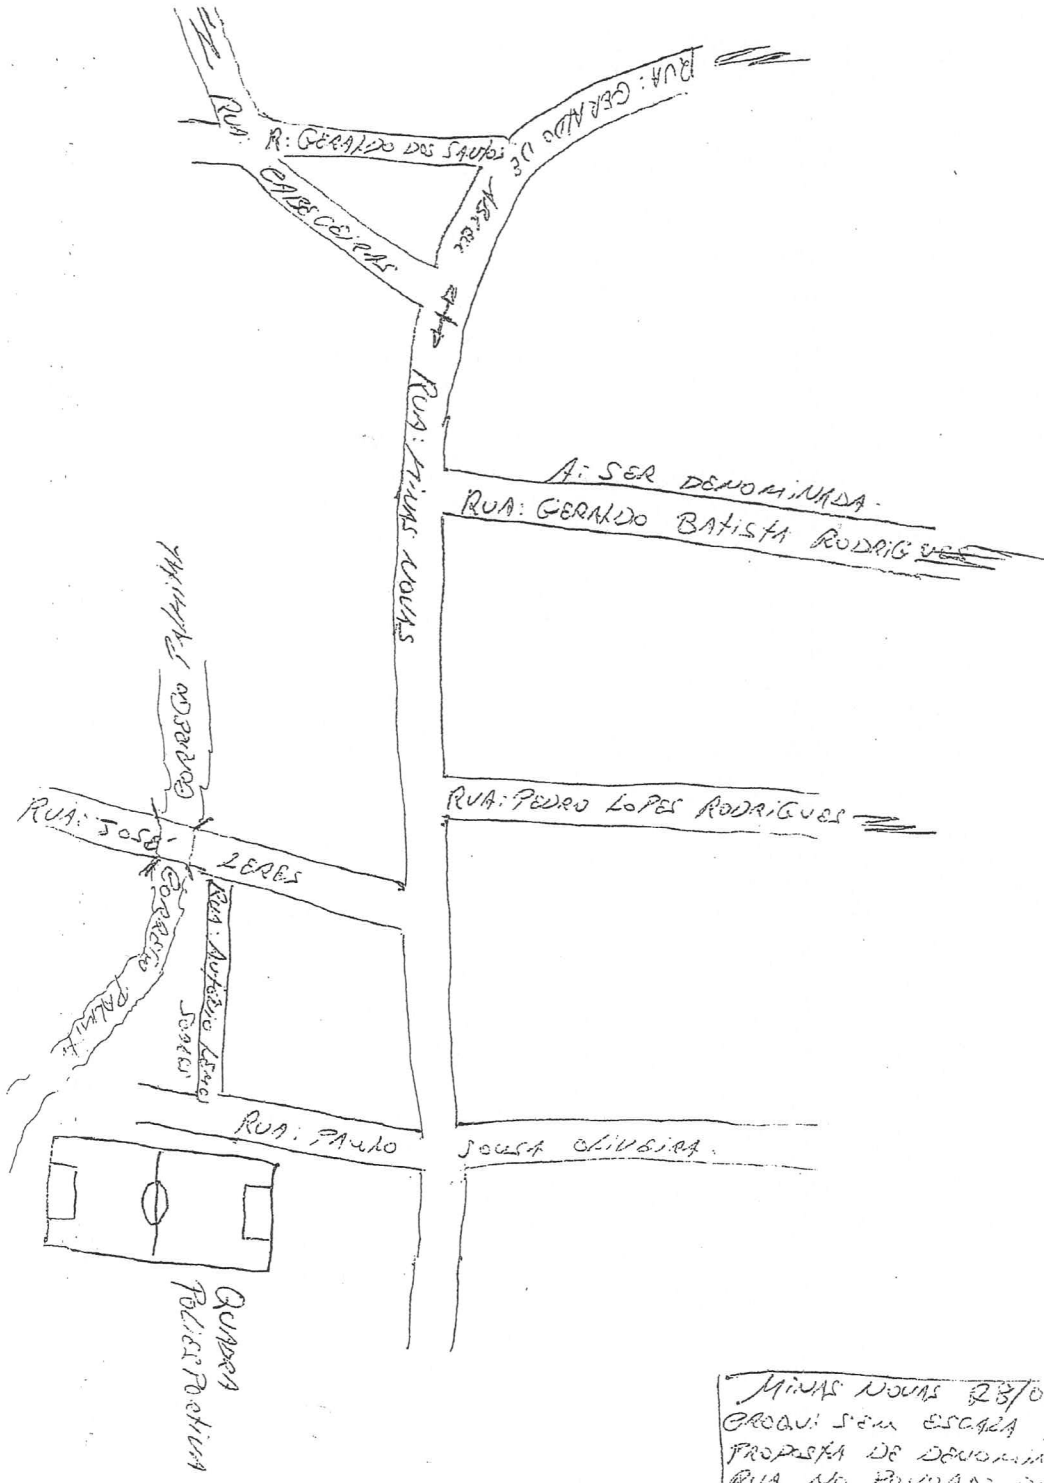 RUA:
CABECEIRAS
R: GERALDO DOS SANTOS
RUA: GERALDO DE
ABREU
RUA: MINAS NOVAS
A: SER DENOMINADA.
RUA: GERALDO BATISTA RODRIGUES
CORREGO PALMITAL
RUA: PEDRO LOPES RODRIGUES
RUA: JOSÉ
LERES
CORREGO PALMIT
RUA: ANTÓNIO LEMO
SOARES
RUA: PAULO SOUSA OLIVEIRA.
QUADRA
POLIESPORTIVA
MINAS NOVAS 28/0
CROQUI SEM ESCALA
PROPOSTA DE DENOMIN
RUA NO